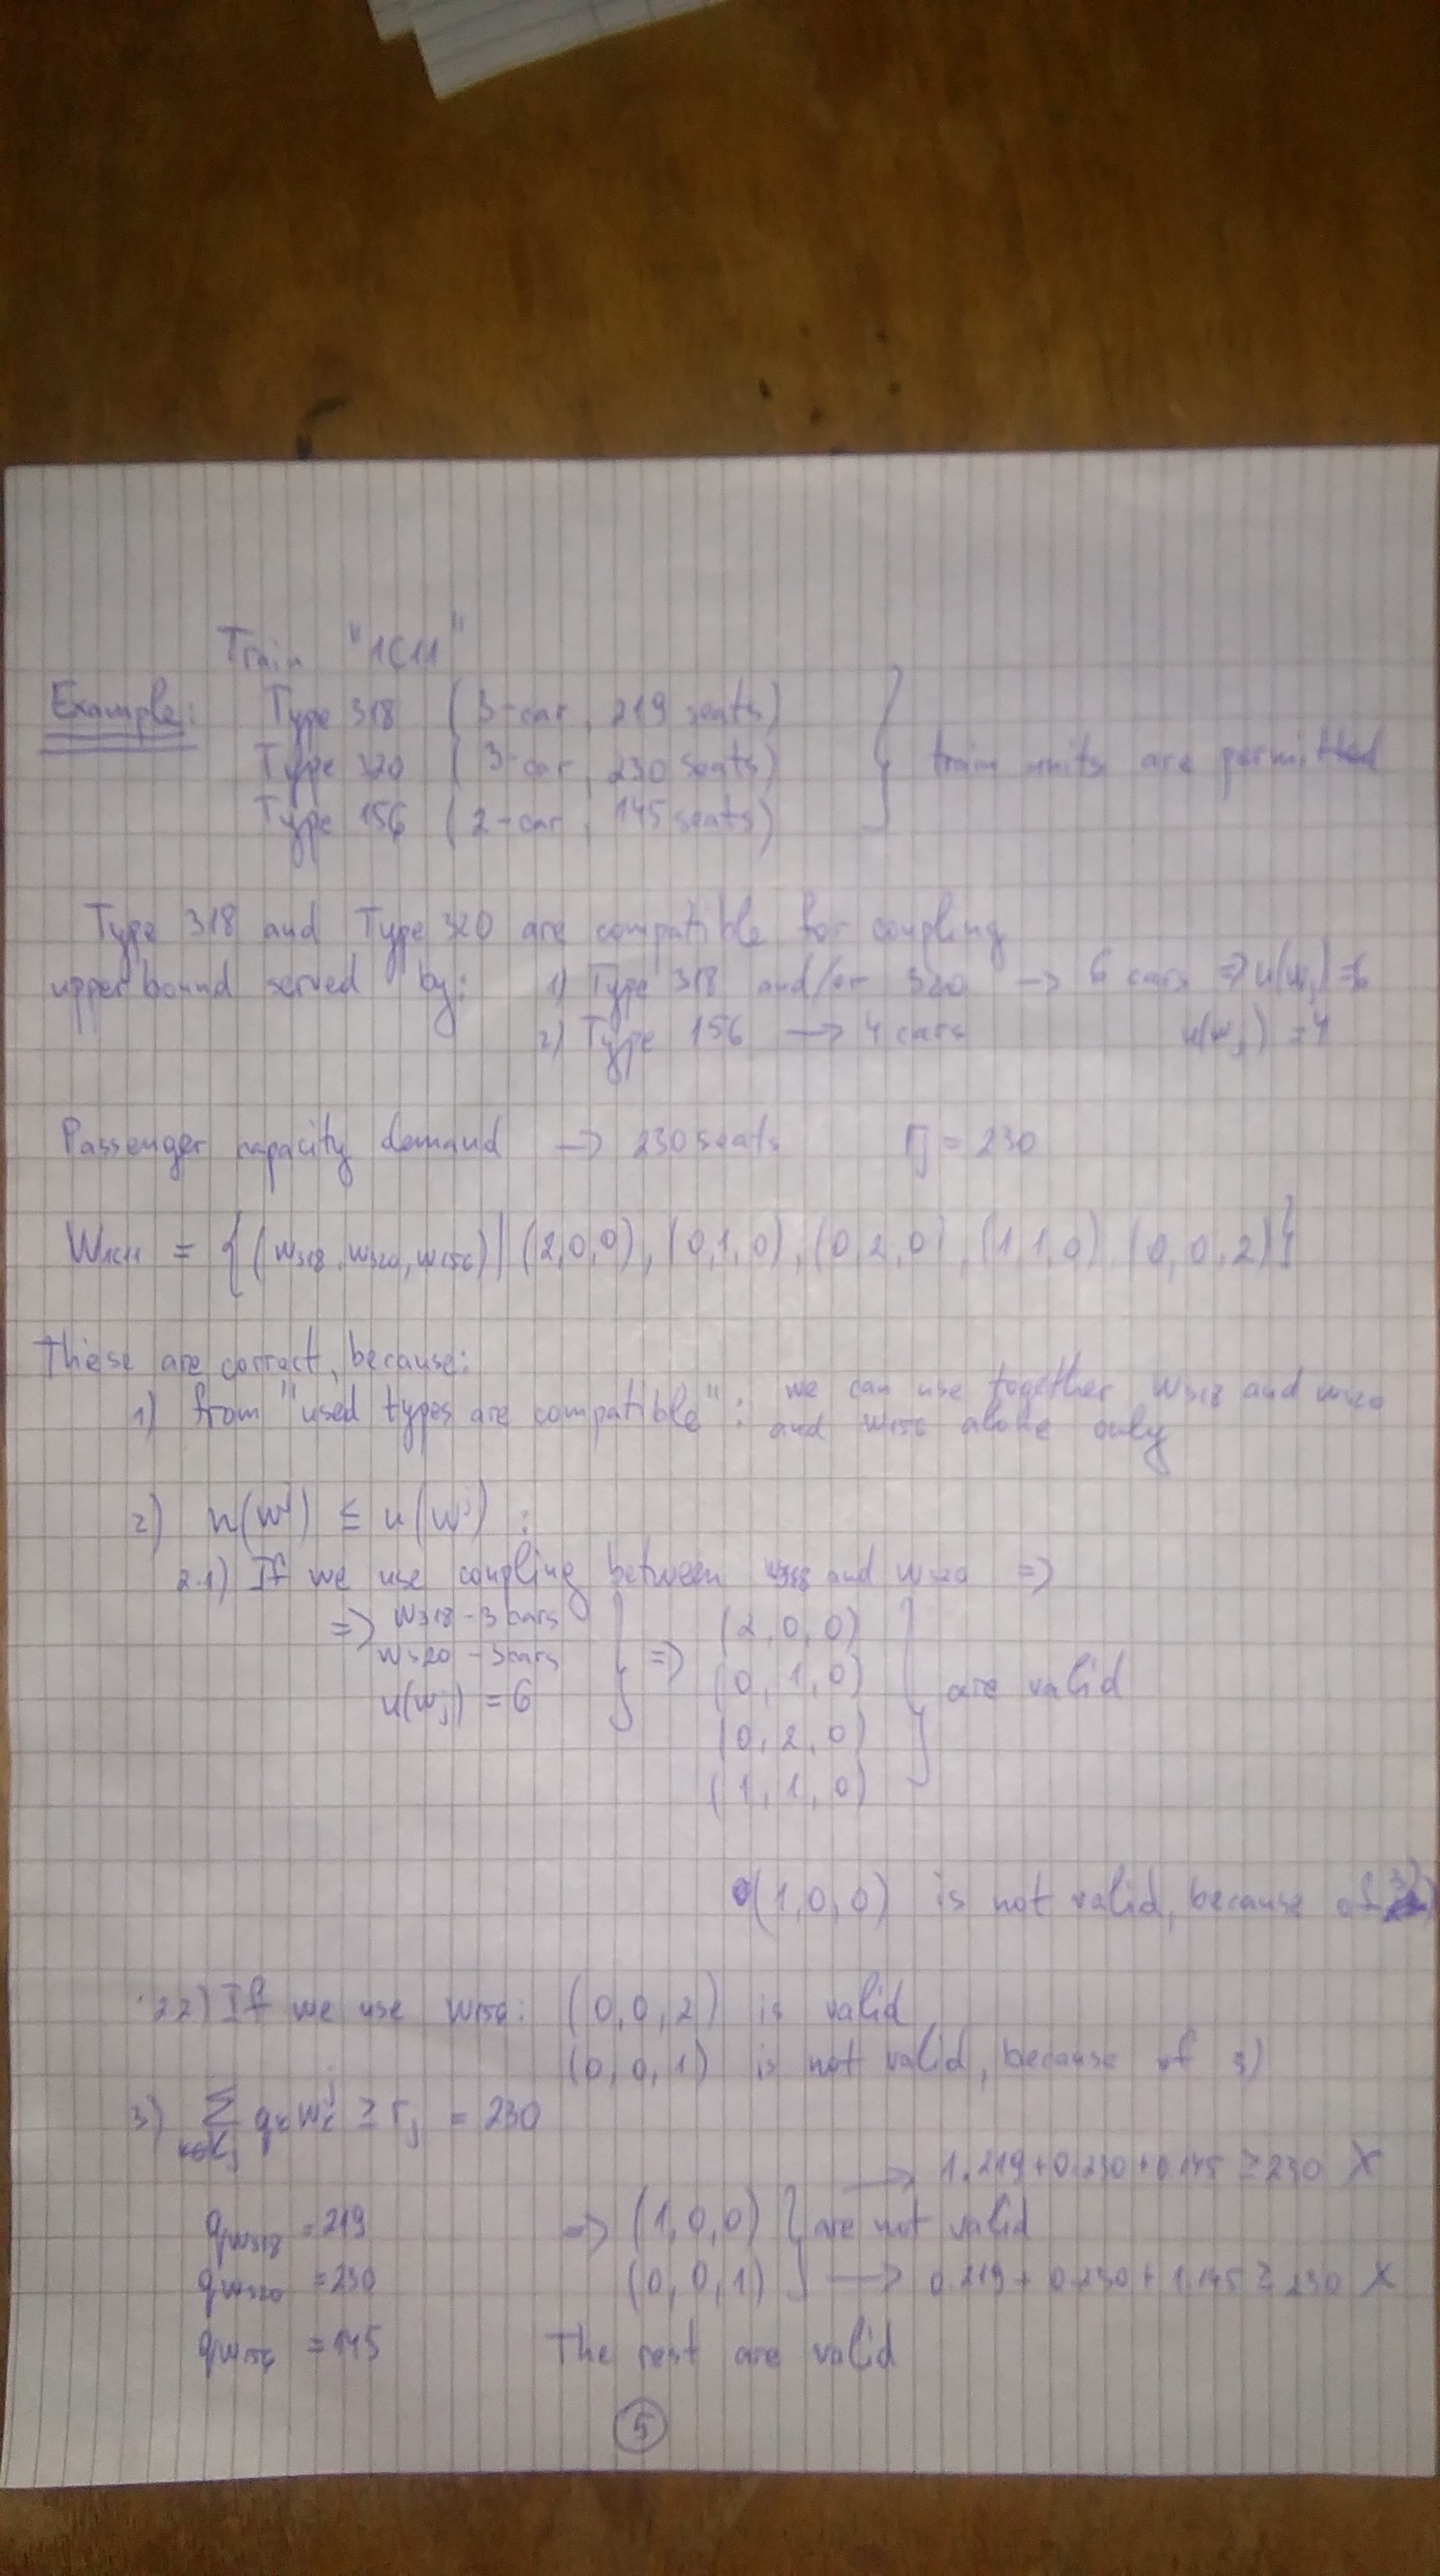 Train "1C11"
Example: Type 318 (3-car, 219 seats)
Type 320 (3-car, 230 seats) } train units are permitted
Type 156 (2-car, 145 seats)
Type 318 and Type 320 are compatible for coupling
upper bound served by: 1) Type 318 and/or 320 → 6 cars => u(wj) = 6
2) Type 156 → 4 cars u(wj) = 4
Passenger capacity demand → 230 seats rj = 230
W1C11 = {(w318, w320, w156) | (2,0,0), (0,1,0), (0,2,0), (1,1,0), (0,0,2)}
These are correct, because:
1) from "used types are compatible": we can use together w318 and w320
and w156 alone only
2) n(wj) ≤ u(wj) :
2.1) If we use coupling between w318 and w320 =>
=> w318 - 3 cars
w320 - 3 cars
u(wj) = 6
} =>
(2, 0, 0)
(0, 1, 0)
(0, 2, 0)
(1, 1, 0)
} are valid
(1, 0, 0) is not valid, because of 3)
2.2) If we use w156: (0, 0, 2) is valid
(0, 0, 1) is not valid, because of 3)
3) ∑k∈Kj qk wkj ≥ rj = 230
→ 1.219 + 0.230 + 0.145 ≥ 230 X
qw318 = 219 => (1, 0, 0) } are not valid
qw320 = 230 (0, 0, 1) → 0.219 + 0.230 + 1.145 ≥ 230 X
qw156 = 145 The rest are valid
5